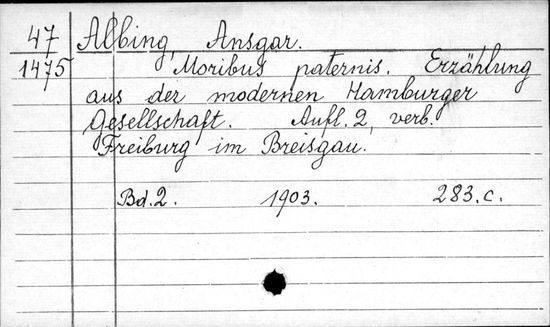 47 Albing, Ansgar.
1475 Moribus paternis. Erzählung
aus der modernen Hamburger
Gesellschaft. Aufl. 2, verb.
Freiburg im Breisgau.
Bd. 2. 1903. 283.c.